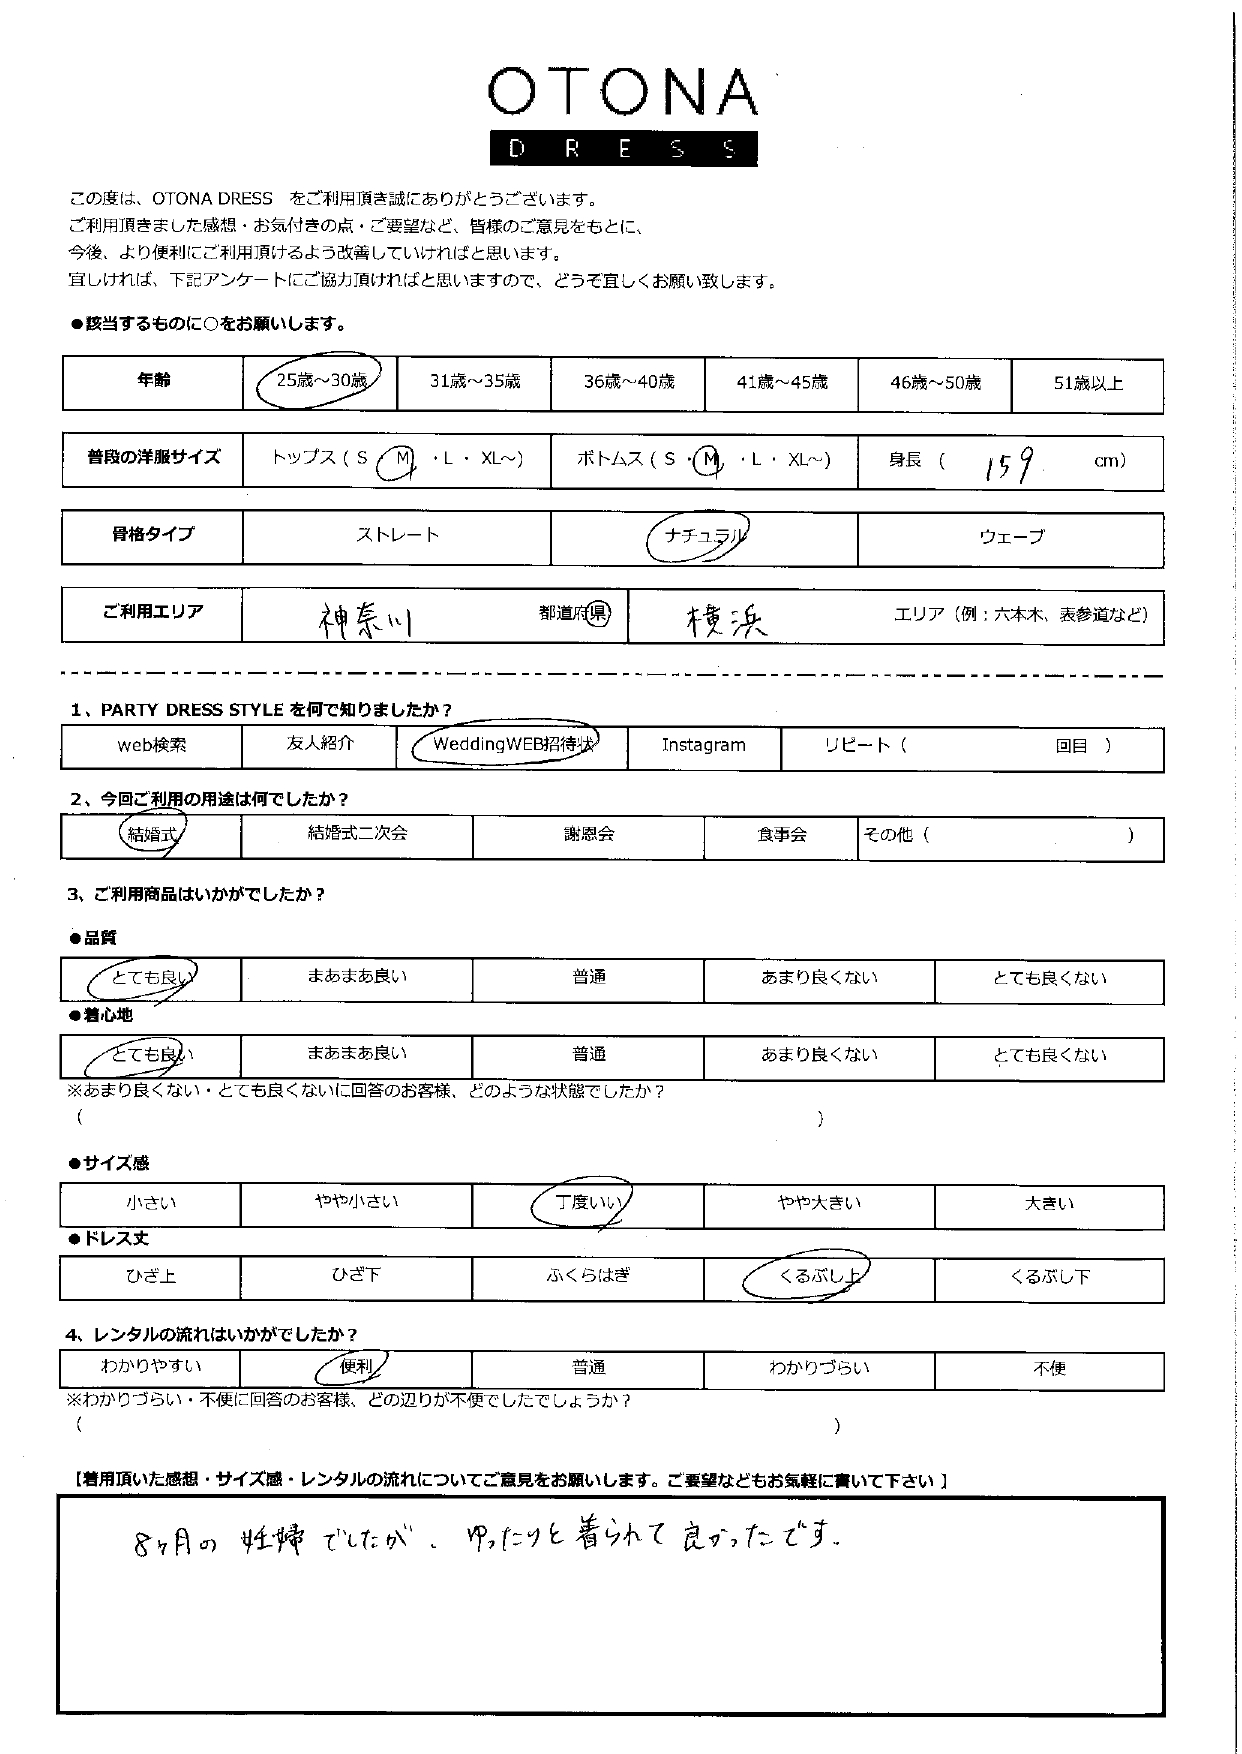 OTONA
DRESS
この度は、OTONA DRESS　をご利用頂き誠にありがとうございます。
ご利用頂きました感想・お気付きの点・ご要望など、皆様のご意見をもとに、
今後、より便利にご利用頂けるよう改善していければと思います。
宜しければ、下記アンケートにご協力頂ければと思いますので、どうぞ宜しくお願い致します。
●該当するものに○をお願いします。
年齢 25歳～30歳 31歳～35歳 36歳～40歳 41歳～45歳 46歳～50歳 51歳以上
普段の洋服サイズ トップス ( S M ・L ・ XL～) ボトムス ( S ・M ・L ・ XL～) 身長 ( 159 cm)
骨格タイプ ストレート ナチュラル ウェーブ
ご利用エリア 神奈川 都道府県 横浜 エリア（例：六本木、表参道など）
1、PARTY DRESS STYLE を何で知りましたか？
web検索 友人紹介 WeddingWEB招待状 Instagram リピート（ 回目 ）
2、今回ご利用の用途は何でしたか？
結婚式 結婚式二次会 謝恩会 食事会 その他（ ）
3、ご利用商品はいかがでしたか？
●品質
とても良い まあまあ良い 普通 あまり良くない とても良くない
●着心地
とても良い まあまあ良い 普通 あまり良くない とても良くない
※あまり良くない・とても良くないに回答のお客様、どのような状態でしたか？
（ ）
●サイズ感
小さい やや小さい 丁度いい やや大きい 大きい
●ドレス丈
ひざ上 ひざ下 ふくらはぎ くるぶし上 くるぶし下
4、レンタルの流れはいかがでしたか？
わかりやすい 便利 普通 わかりづらい 不便
※わかりづらい・不便に回答のお客様、どの辺りが不便でしたでしょうか？
（ ）
【着用頂いた感想・サイズ感・レンタルの流れについてご意見をお願いします。ご要望などもお気軽に書いて下さい 】
8ヶ月の 妊婦 でしたが、ゆったりと着られて良かったです.